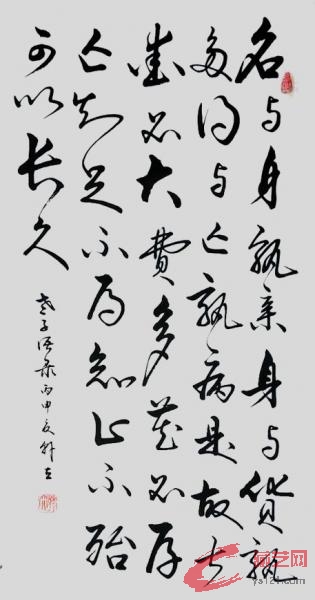 名与身孰亲身与货孰
多得与亡孰病是故甚
爱必大費多藏必厚
亡知足不辱知止不殆
可以长久
老子语录丙申